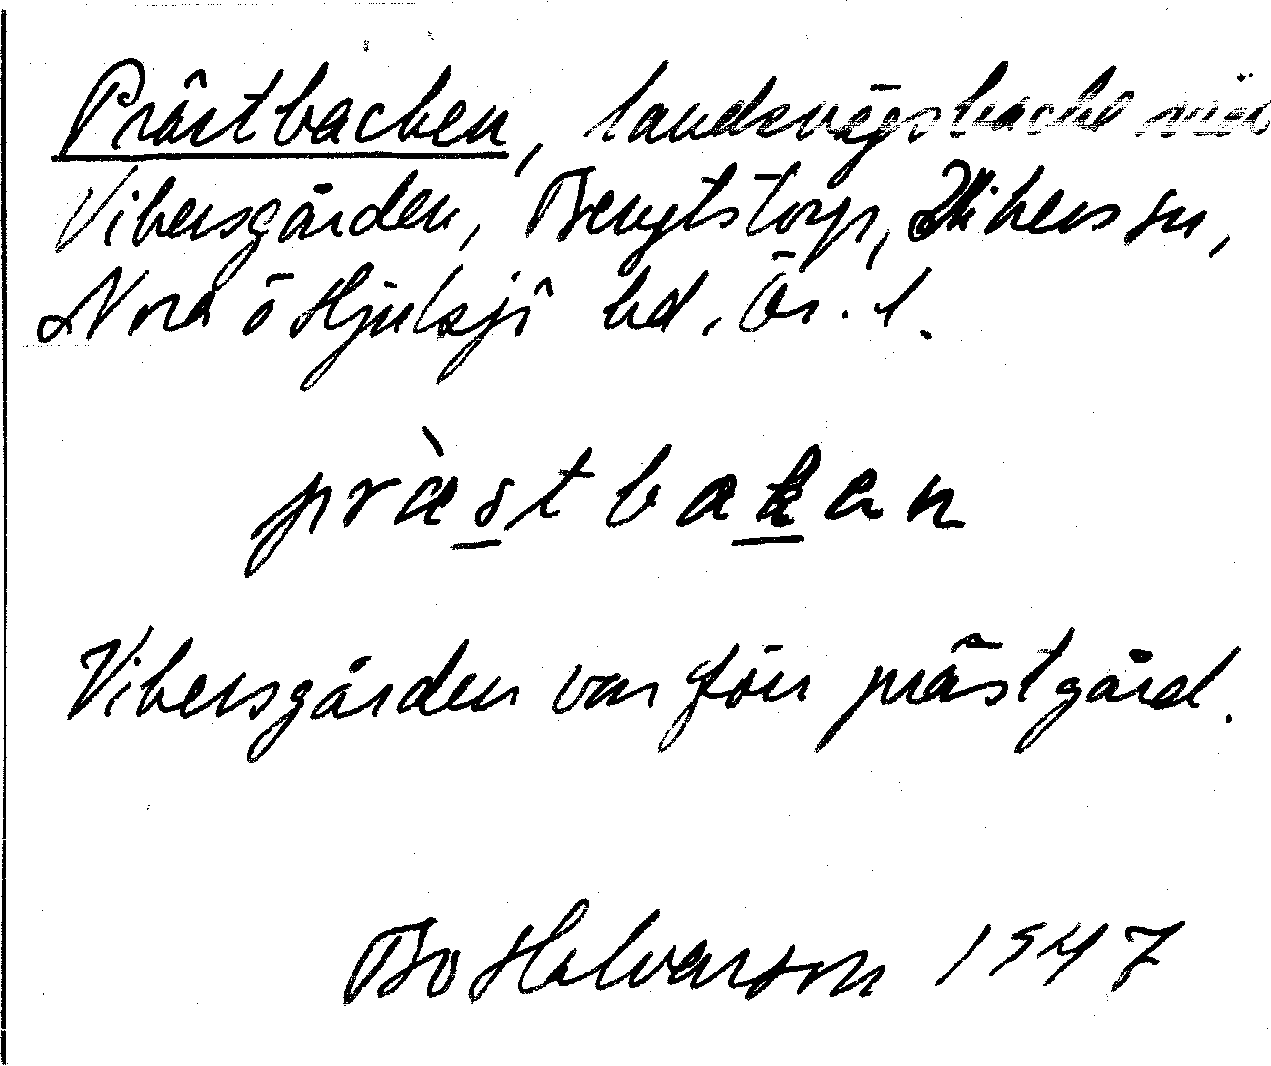 Prästbacken, landsvägsbacke vid
Vibersgården, Bengtstorp, Vikers sn,
Nora o Hjulsjö bd. Ör. l.
præstbakan
Vibersgården var förr prästgård.
Bo Halvarson 1947